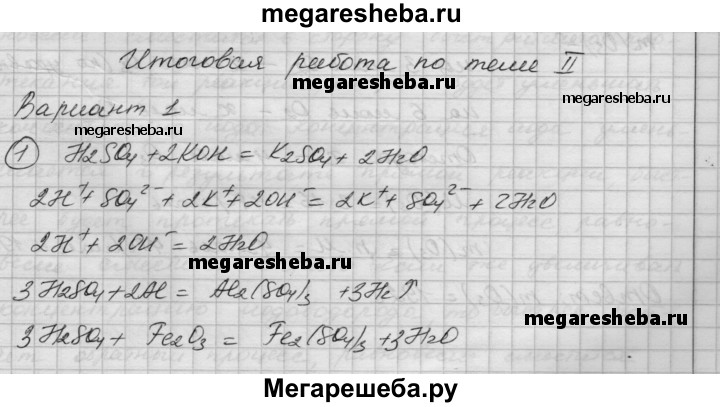 megaresheba.ru
Итоговая работа по теме II
megaresheba.ru
Вариант 1
megaresheba.ru
1 H2SO4 + 2KOH = K2SO4 + 2H2O
2H⁺ + SO4²⁻ + 2K⁺ + 2OH⁻ = 2K⁺ + SO4²⁻ + 2H2O
2H⁺ + 2OH⁻ = 2H2O
megaresheba.ru
3H2SO4 + 2Al = Al2(SO4)3 + 3H2↑
megaresheba.ru
3H2SO4 + Fe2O3 = Fe2(SO4)3 + 3H2O
Мегарешеба.ру